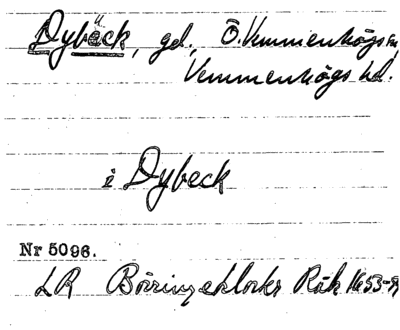 Dybäck, gd., Ö. Vemmenhögs sn,
Vemmenhögs hd.
i Dybeck
Nr 5096.
LR Börringeklosters Räk 1653-